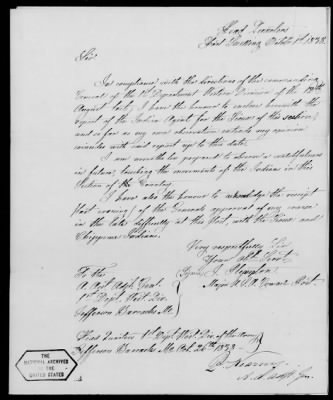 Head Quarters
Fort Dearborn, October 1st 1833.
Sir
In compliance with the directions of the commanding
General of the 1st Department Western Division of the 19th
August last, I have the honour to enclose herewith the
report of the Indian Agent for the Tribes of this section,
and so far as my own observation extends my opinion
coincides with said report up to this date.
I am unable, prepared to observe a watchfulness
in future, touching the movements of the Indians in this
Section of the Country.
I have also the honour to acknowledge the receipt
of the Generals approval of my course
in the late difficulty at this Post, with the
Chippewa Indians.
Very respectfully Sir
Your Obt. Servt.
Major U.S.A. Comdr. Post.
To the
A. Asst. Adjt. Genl.
1st Dept. West. Div.
Jefferson Barracks Mo.
Head Quarters 1st Dept. West. Div. of the Army
Jefferson Barracks Mo. Oct. 26th 1833
THE
NATIONAL ARCHIVES
OF THE
UNITED STATES